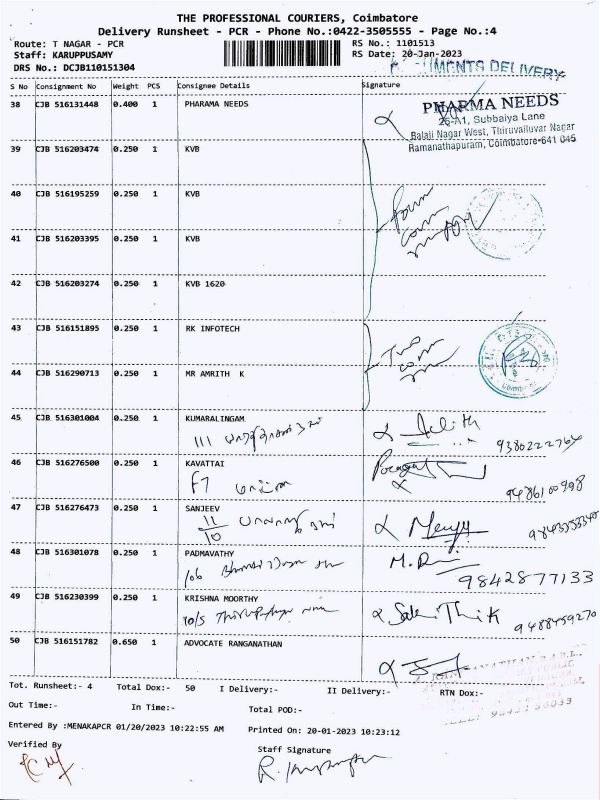 THE PROFESSIONAL COURIERS, Coimbatore
Delivery Runsheet - PCR - Phone No.:0422-3505555 - Page No.:4
Route: T NAGAR - PCR RS No.: 1101513
Staff: KARUPPUSAMY RS Date: 20-Jan-2023
DRS No.: DCJB110151304
MENTS DELIVERY
S No Consignment No Weight PCS Consignee Details Signature
38 CJB 516131448 0.400 1 PHARAMA NEEDS
PHARMA NEEDS
26-A1, Subbaiya Lane
Balaji Nagar West, Thiruvalluvar Nagar
Ramanathapuram, Coimbatore-641 045
39 CJB 516203474 0.250 1 KVB
40 CJB 516195259 0.250 1 KVB
41 CJB 516203395 0.250 1 KVB
42 CJB 516203274 0.250 1 KVB 1620
43 CJB 516151895 0.250 1 RK INFOTECH
44 CJB 516290713 0.250 1 MR AMRITH K
Two
45 CJB 516301004 0.250 1 KUMARALINGAM
111
9380222764
46 CJB 516276500 0.250 1 KAVATTAI
F7
9486100998
47 CJB 516276473 0.250 1 SANJEEV
11/10
48 CJB 516301078 0.250 1 PADMAVATHY
106
9842877133
49 CJB 516230399 0.250 1 KRISHNA MOORTHY
10/5
9488459270
50 CJB 516151782 0.650 1 ADVOCATE RANGANATHAN
Tot. Runsheet:- 4 Total Dox:- 50 I Delivery:- II Delivery:- RTN Dox:-
Out Time:- In Time:- Total POD:-
Entered By :MENAKAPCR 01/20/2023 10:22:55 AM Printed On: 20-01-2023 10:23:12
Verified By Staff Signature